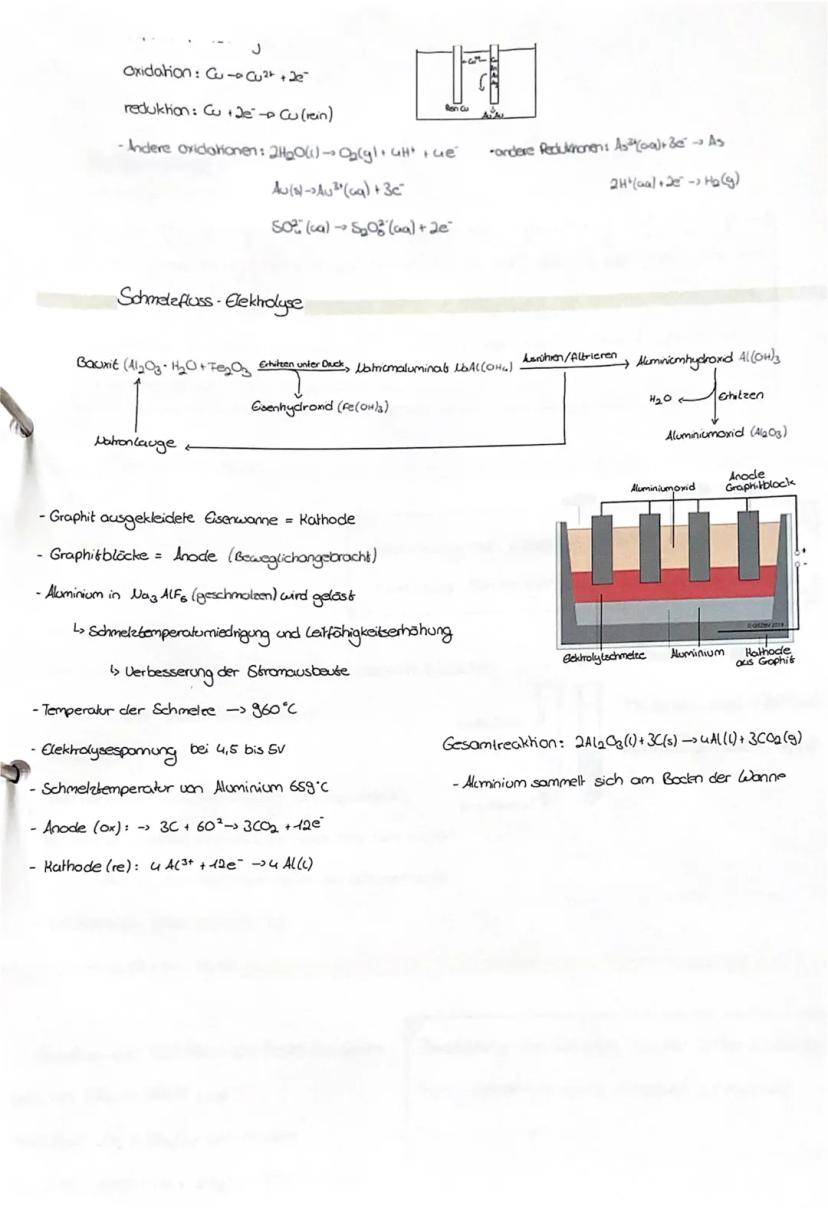 Oxidation: Cu → Cu²⁺ + 2e⁻
reduktion: Cu + 2e⁻ → Cu (rein)
Rein Cu
- Andere oxidationen: 2H₂O(l) → O₂(g) + 4H⁺ + 4e⁻
Au(s) → Au³⁺(aq) + 3e⁻
SO₄²⁻(aq) → S₂O₈²⁻(aq) + 2e⁻
• andere Reduktionen: As³⁺(aq) + 3e⁻ → As
2H⁺(aq) + 2e⁻ → H₂(g)
Schmelzfluss-Elektrolyse
Bauxit (Al₂O₃ · H₂O + Fe₂O₃ Erhitzen unter Druck → Natriumaluminat NaAl(OH₄) Ausrühren/filtrieren → Aluminiumhydroxid Al(OH)₃
Eisenhydroxid (Fe(OH)₃)
H₂O ← Erhitzen
Natronlauge
Aluminiumoxid (Al₂O₃)
- Graphit ausgekleidete Eisenwanne = Kathode
- Graphitblöcke = Anode (Beweglich angebracht)
- Aluminium in Na₃AlF₆ (geschmolzen) wird gelöst
↳ Schmelztemperaturniedrigung und Leitfähigkeitserhöhung
↳ Verbesserung der Stromausbeute
- Temperatur der Schmelze → 960°C
- Elektrolysespannung bei 4,5 bis 5V
- Schmelztemperatur von Aluminium 659°C
- Anode (ox): → 3C + 6O² → 3CO₂ + 12e⁻
- Kathode (re): 4 Al³⁺ + 12e⁻ → 4 Al(l)
Aluminiumoxid
Anode
Graphitblock
+
-
Elektrolytschmelze
Aluminium
Kathode
aus Graphit
Gesamtreaktion: 2Al₂O₃(l) + 3C(s) → 4Al(l) + 3CO₂(g)
- Aluminium sammelt sich am Boden der Wanne